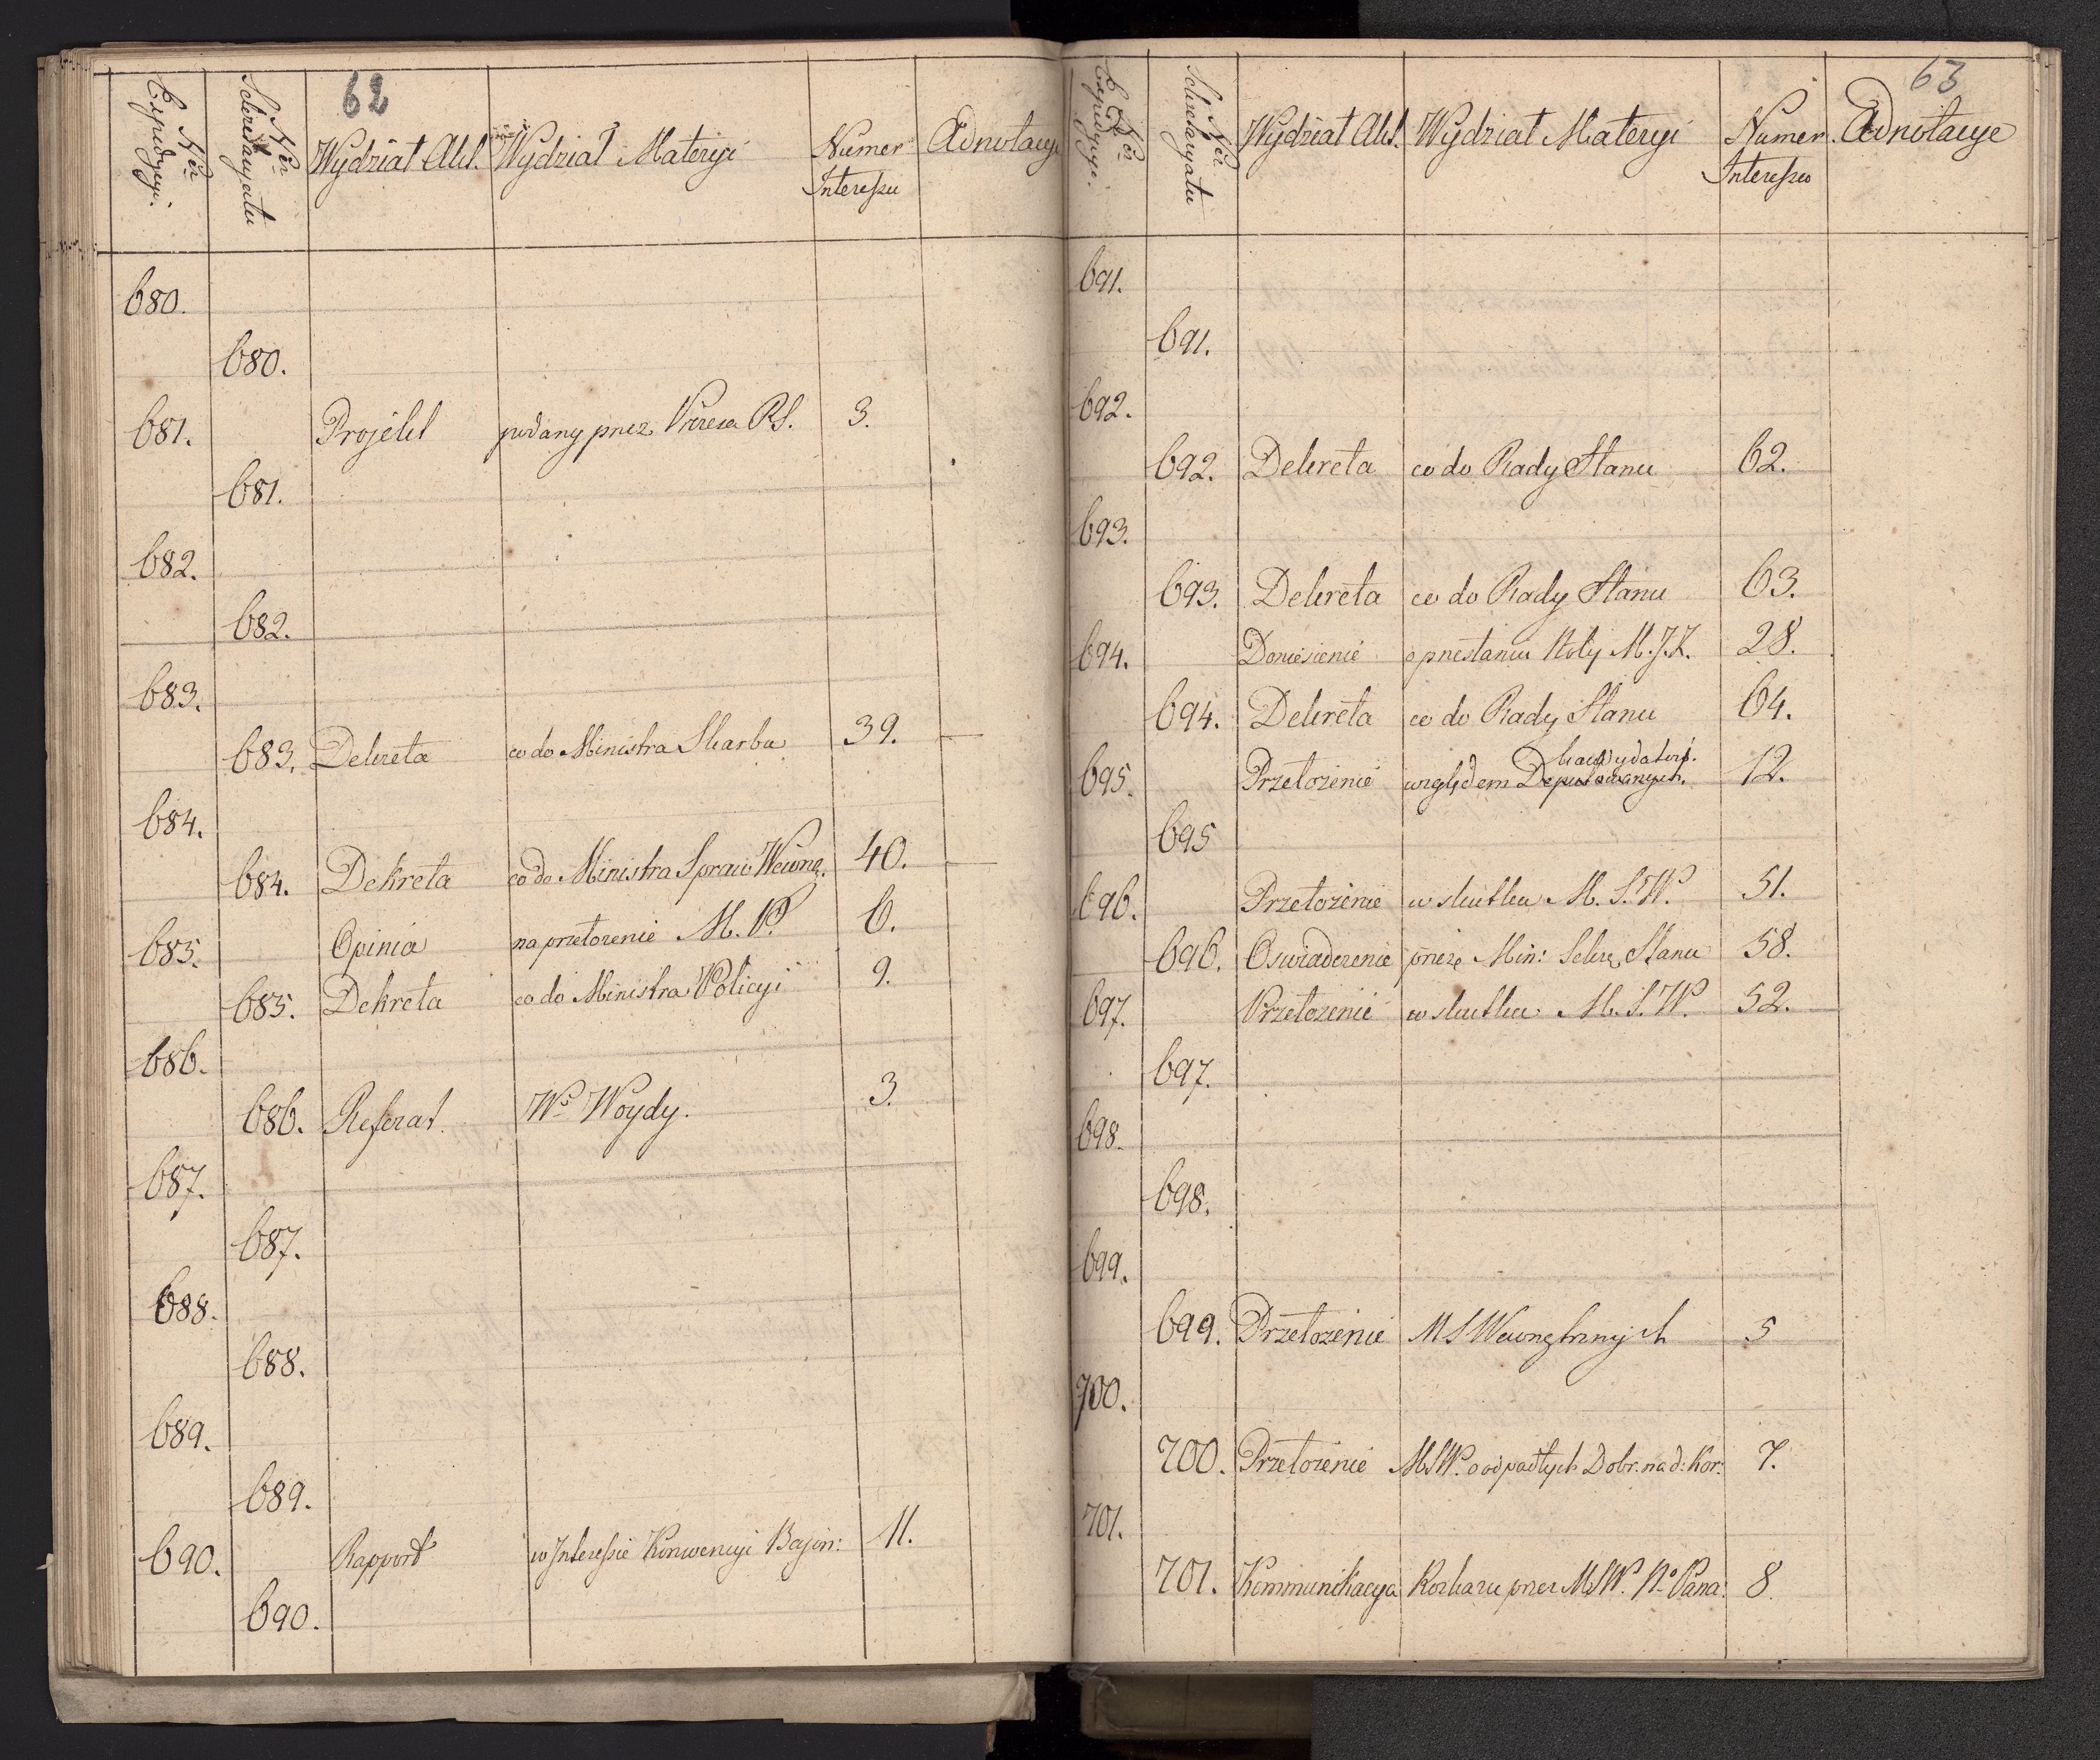 62
Nr Expedycyi. Nr Sekretaryatu Wydział Akt. Wydział Materyi Numer Interessu Adnotacye
680.
680.
681. Projekt podany przez Prezesa RS. 3.
681.
682.
682.
683.
683. Dekreta co do Ministra Skarbu 39.
684.
684. Dekreta co do Ministra Spraw Wewnę. 40.
685. Opinia na przełożenie M. P. 6.
685. Dekreta co do Ministra Policyi 9.
686.
686. Referat Wo Woydy. 3.
687.
687.
688.
688.
689.
689.
690. Rapport w Interessie Konwencyi Bajoń: 11.
690.
63
Nr Expedycyi. Nr Sekretaryatu Wydział Akt. Wydział Materyi Numer Interessu Adnotacye
691.
691.
692.
692. Dekreta co do Rady Stanu 62.
693.
693. Dekreta co do Rady Stanu 63.
694. Doniesienie o przesłaniu Noty M.J.Z. 28.
694. Dekreta co do Rady Stanu 64.
Kandydatów.
695. Przełożenie względem Deputowanych. 12.
695
696. Przełożenie w skutku M. S. W. 51.
696. Oswiadczenie przez Min: Sekre Stanu 58.
697. Przełożenie w skutku M. S. W. 52.
697.
698.
698.
699.
699. Przełożenie M S Wewnętrznych 5
700.
700. Przełożenie MSW. o odpadłych Dobr. nad: Kor: 7.
701.
701. Kommunikacya Rozkazu przez MSW. No Pana 8.